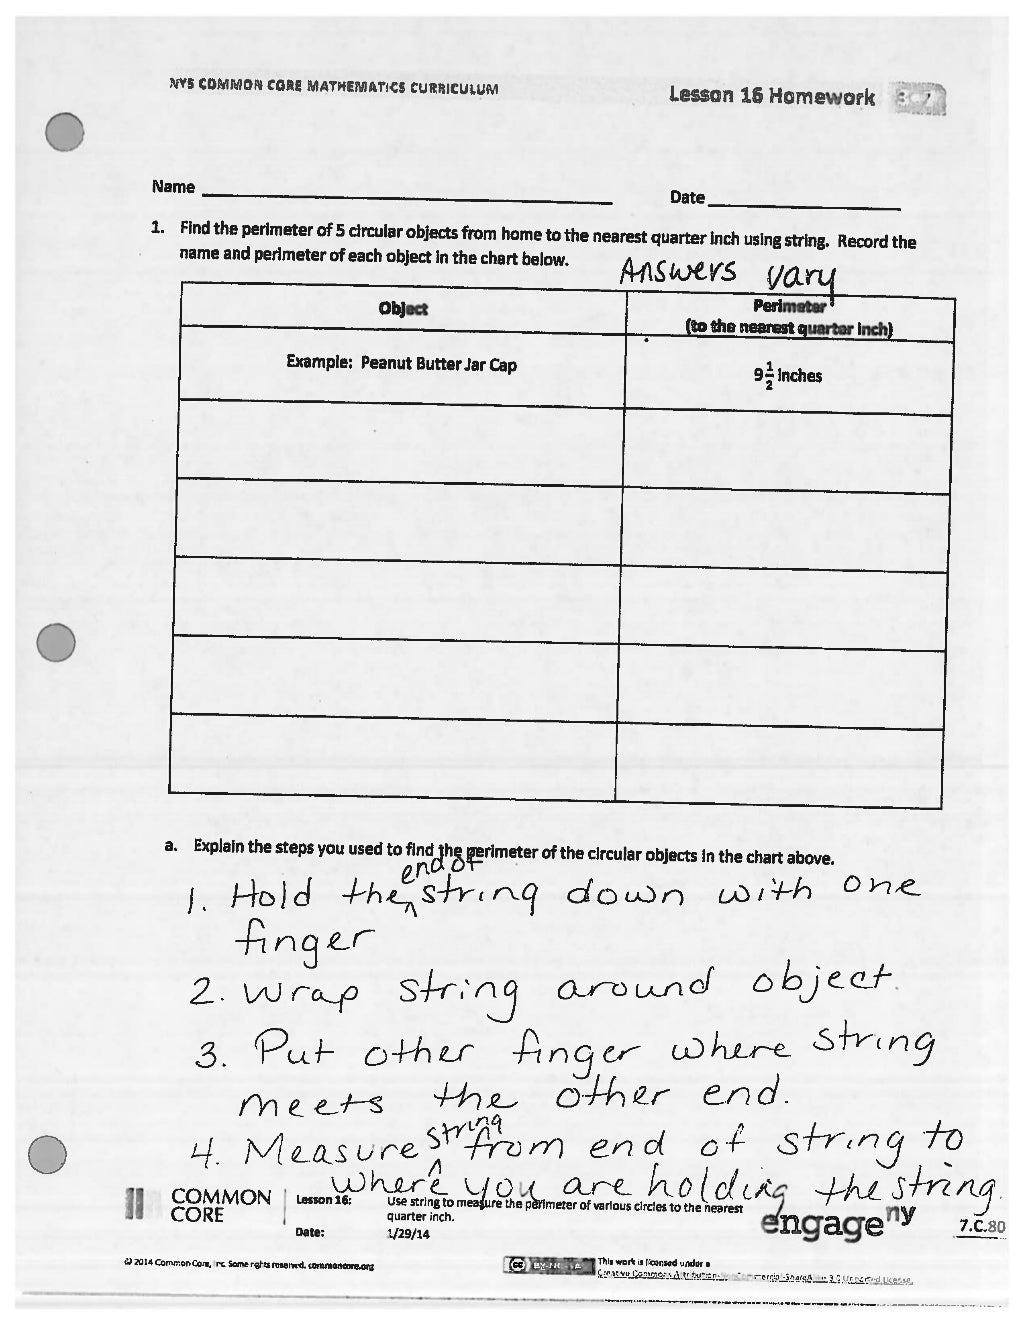 NYS COMMON CORE MATHEMATICS CURRICULUM
Lesson 16 Homework
3•7
Name
Date
1. Find the perimeter of 5 circular objects from home to the nearest quarter inch using string. Record the
name and perimeter of each object in the chart below.
Answers vary
Object
Perimeter
(to the nearest quarter inch)
Example: Peanut Butter Jar Cap
9 1/2 inches
a. Explain the steps you used to find the perimeter of the circular objects in the chart above.
end of
1. Hold the ^ string down with one
finger
2. Wrap string around object.
3. Put other finger where string
meets the other end.
string
4. Measure ^ from end of string to
where you are holding the string.
COMMON
CORE
Lesson 16: Use string to measure the perimeter of various circles to the nearest
quarter inch.
Date: 1/29/14
engage ny
7.C.80
© 2014 Common Core, Inc. Some rights reserved. commoncore.org
cc BY-NC-SA
This work is licensed under a
Creative Commons Attribution-NonCommercial-ShareAlike 3.0 Unported License.